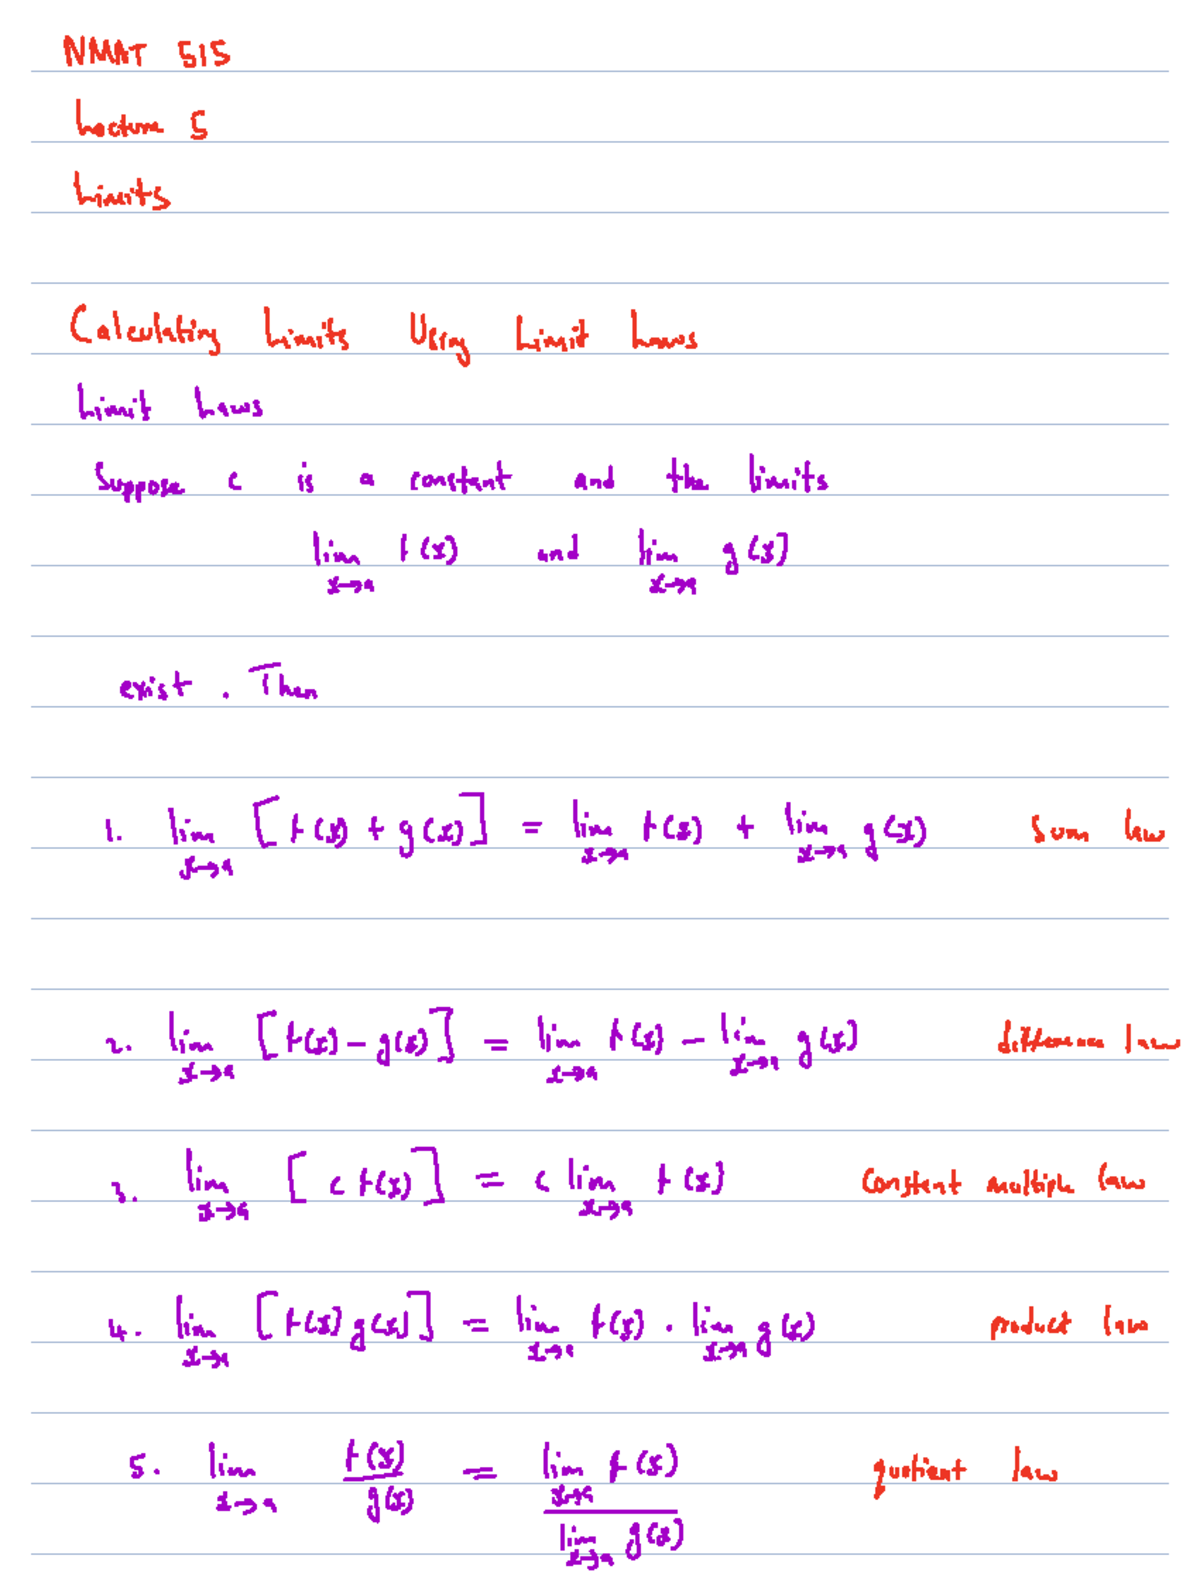 NMAT 515
Lecture 5
Limits
Calculating Limits Using Limit Laws
Limit Laws
Suppose c is a constant and the limits
lim x→a f(x) and lim x→a g(x)
exist. Then
1. lim x→a [f(x) + g(x)] = lim x→a f(x) + lim x→a g(x) sum law
2. lim x→a [f(x) − g(x)] = lim x→a f(x) − lim x→a g(x) difference law
3. lim x→a [c f(x)] = c lim x→a f(x) constant multiple law
4. lim x→a [f(x) g(x)] = lim x→a f(x) · lim x→a g(x) product law
5. lim x→a f(x)/g(x) = lim x→a f(x) / lim x→a g(x) quotient law